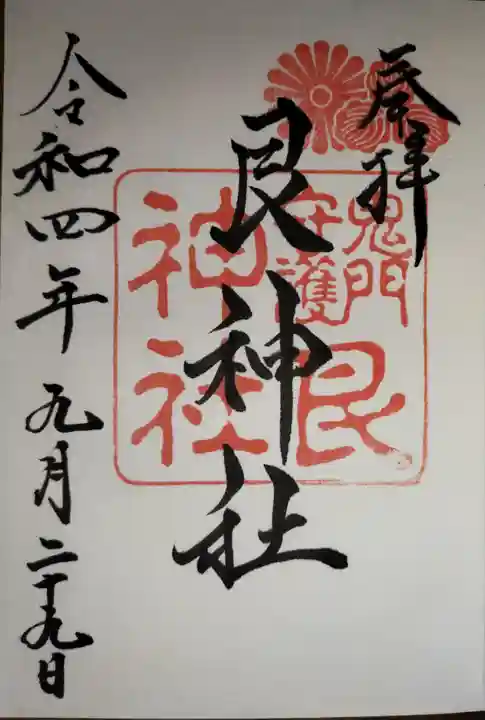 奉拝
艮神社
鬼門
守護
艮
神社
令和四年九月二十九日